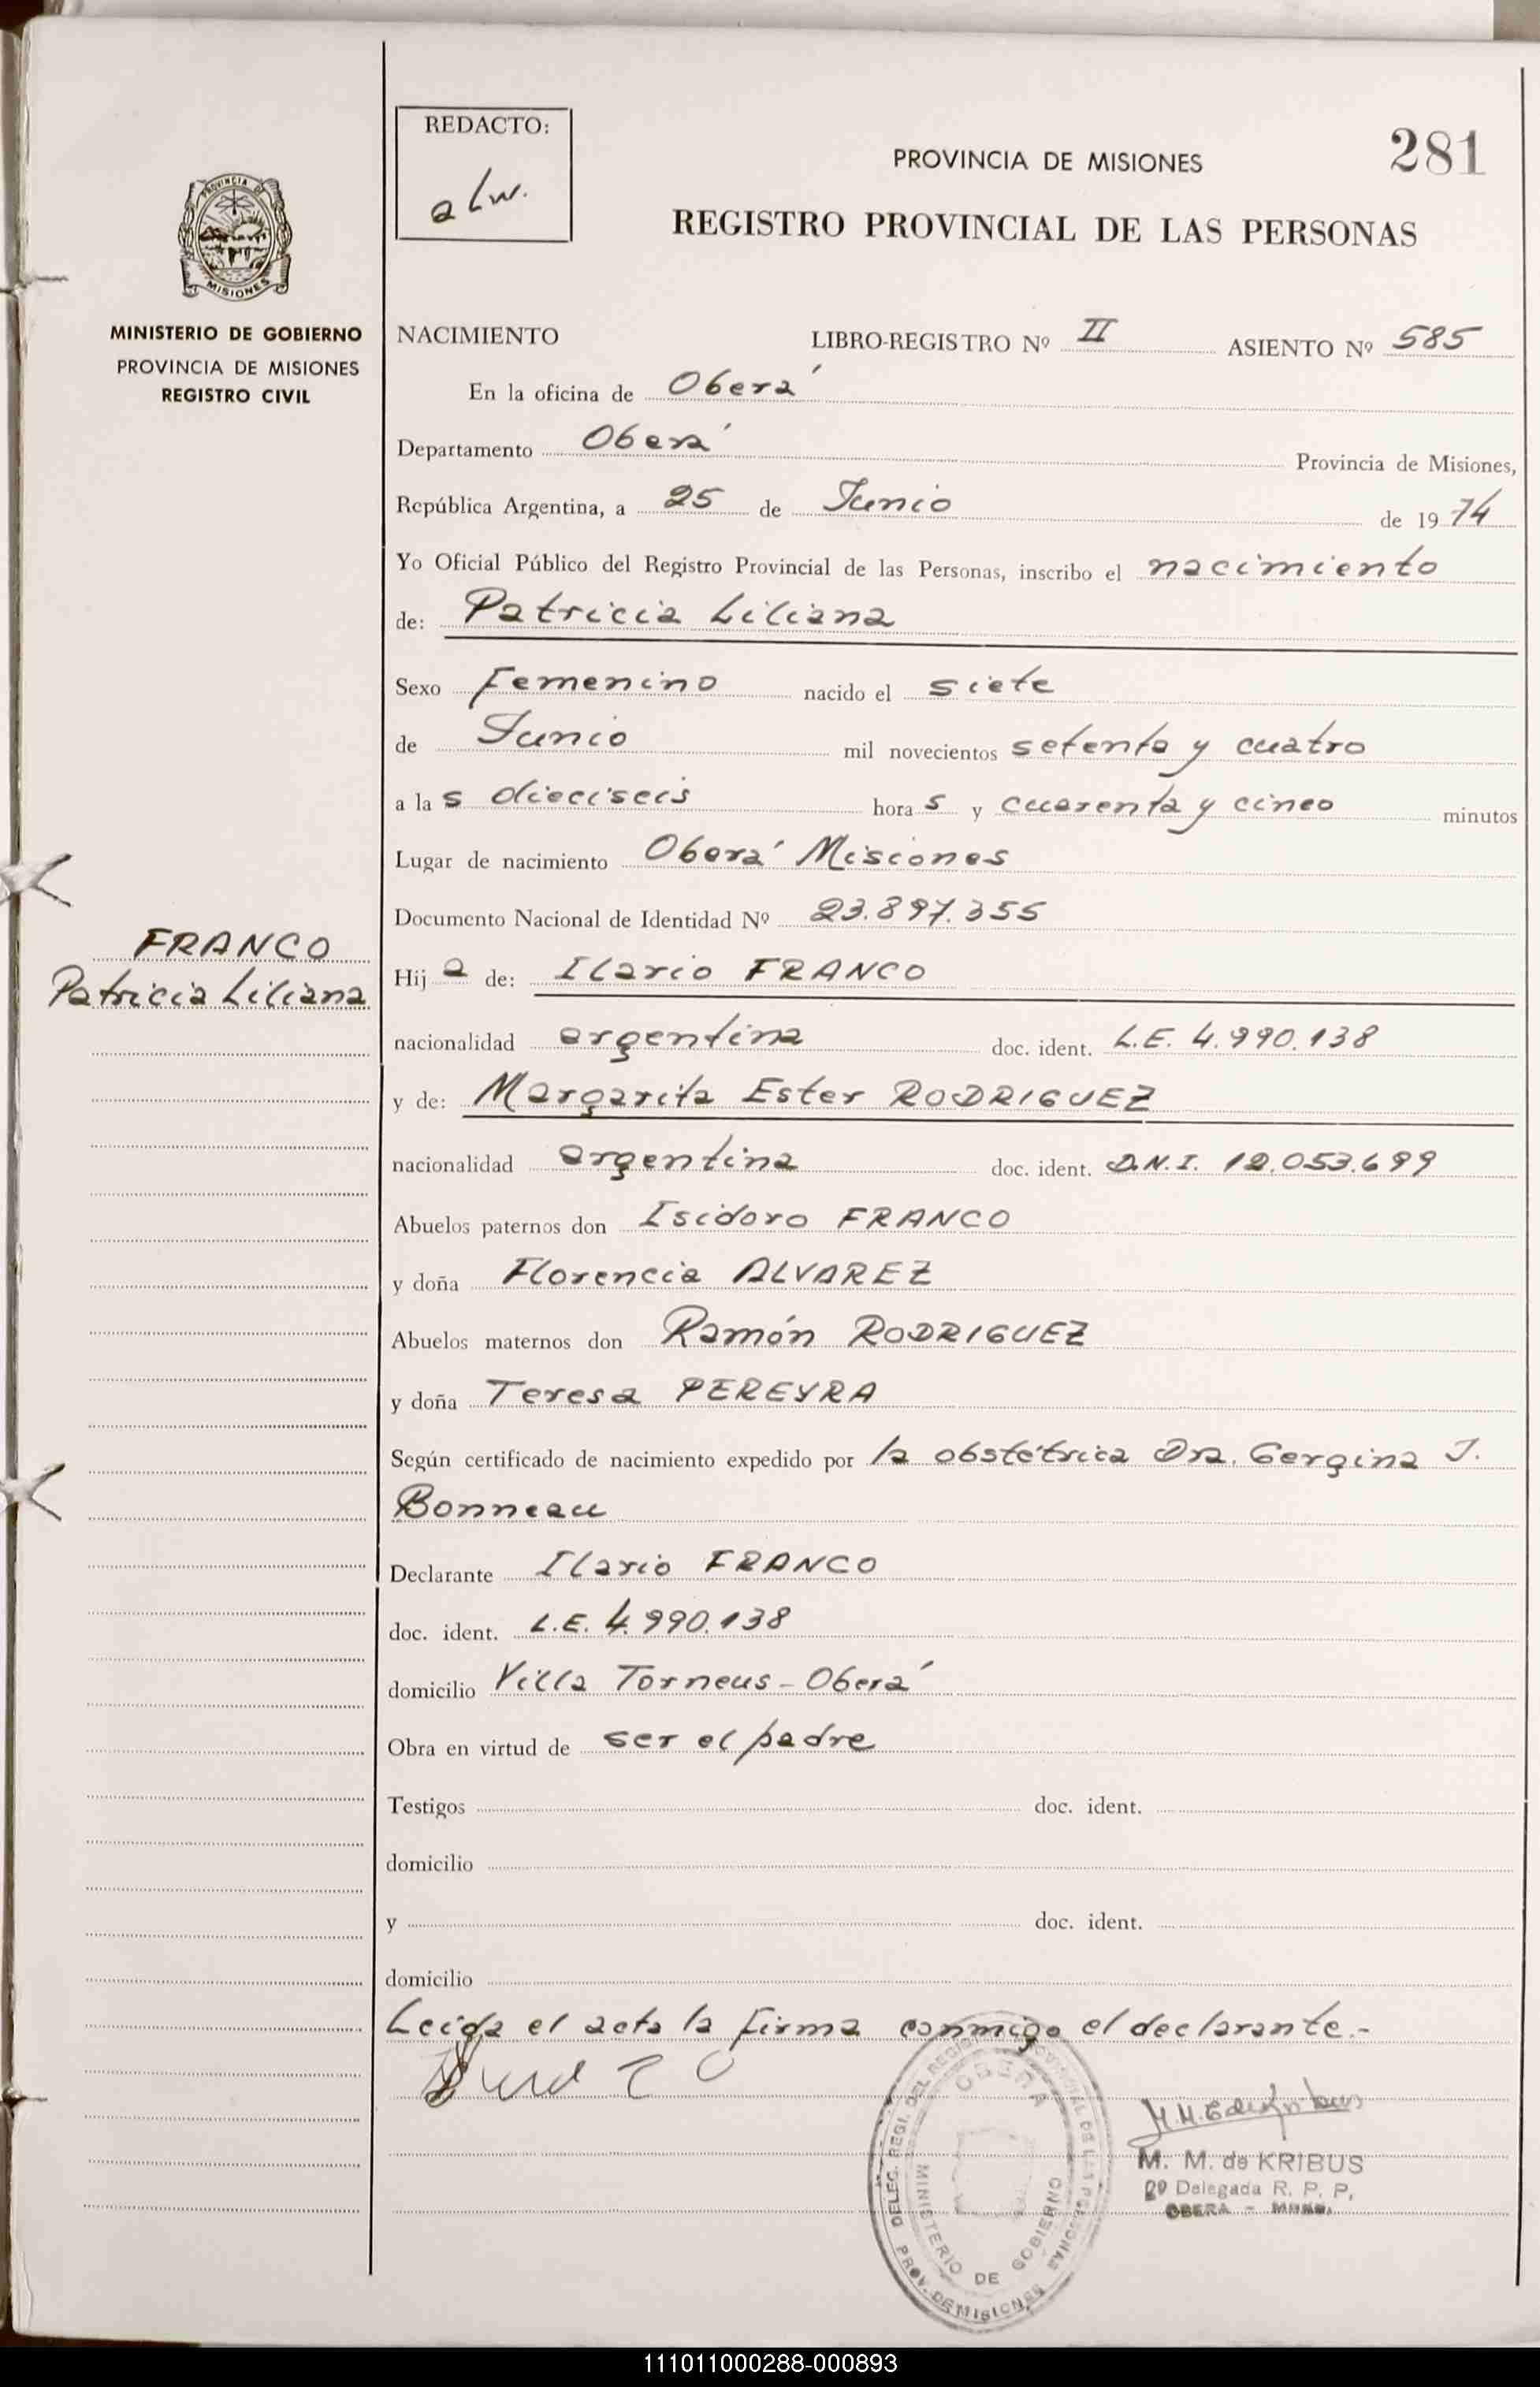 REDACTO:
alw.
281
PROVINCIA DE MISIONES
REGISTRO PROVINCIAL DE LAS PERSONAS
PROVINCIA DE
MISIONES
MINISTERIO DE GOBIERNO
PROVINCIA DE MISIONES
REGISTRO CIVIL
NACIMIENTO LIBRO-REGISTRO Nº II ASIENTO Nº 585
En la oficina de Oberá
Departamento Oberá Provincia de Misiones,
República Argentina, a 25 de Junio de 1974
Yo Oficial Público del Registro Provincial de las Personas, inscribo el nacimiento
de: Patricia Liliana
Sexo Femenino nacido el siete
de Junio mil novecientos setenta y cuatro
a las dieciseis horas y cuarenta y cinco minutos
Lugar de nacimiento Oberá Misiones
Documento Nacional de Identidad Nº 23.897.355
FRANCO
Patricia Liliana
Hija de: Ilario FRANCO
nacionalidad argentina doc. ident. L.E. 4.990.138
y de: Margarita Ester RODRIGUEZ
nacionalidad argentina doc. ident. D.N.I. 12.053.699
Abuelos paternos don Isidoro FRANCO
y doña Florencia ALVAREZ
Abuelos maternos don Ramón RODRIGUEZ
y doña Teresa PEREYRA
Según certificado de nacimiento expedido por la obstétrica Dra. Gergina J.
Bonneau
Declarante Ilario FRANCO
doc. ident. L.E. 4.990.138
domicilio Villa Torneus - Oberá
Obra en virtud de ser el padre
Testigos doc. ident.
domicilio
y doc. ident.
domicilio
Leida el acta la firma conmigo el declarante.-
DELEG. REGI. DEL REGISTRO PROVINCIAL DE LAS PERSONAS
OBERA
MINISTERIO DE GOBIERNO
PROV. DE MISIONES
M. M. de KRIBUS
2º Delegada R. P. P.
OBERA - MNES.
111011000288-000893